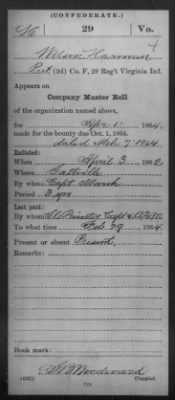 (CONFEDERATE.)
H 29 Va.
Wilson Harmon
Pvt (2d) Co. F, 29 Reg't Virginia Inf.
Appears on
Company Muster Roll
of the organization named above,
for Apr 1, 1864,
made for the bounty due Oct. 1, 1864.
dated Mch 7 1864
Enlisted:
When April 3, 1862
Where Saltville
By whom Capt. Marsh
Period 3 yrs
Last paid:
By whom Capt &
To what time Feb 29, 1864.
Present or absent Present
Remarks:
Book mark:
Woodward
(642) Copyist.